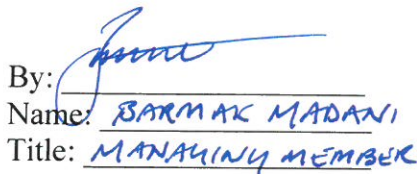 By:
Name: BARMAK MADANI
Title: MANAGING MEMBER